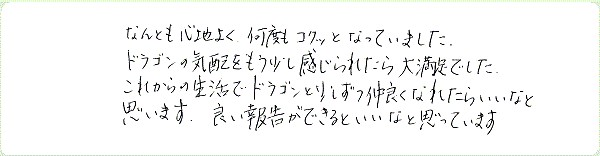 なんとも心地よく何度もコクッとなっていました.
ドラゴンの気配をもう少し感じられたら大満足でした.
これからの生活でドラゴンと少しずつ仲良くなれたらいいなと
思います. 良い報告ができるといいなと思っています